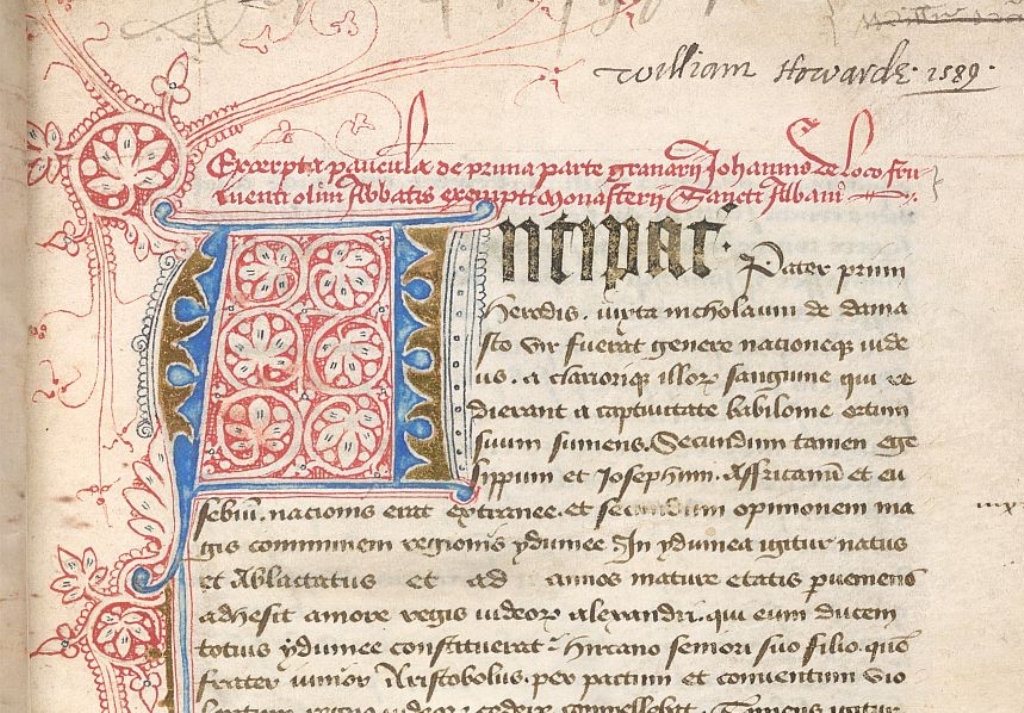 William Howarde 1589.
Excerpta paucula de prima parte granarij Johannis de loco fru-
menti olim Abbatis exempti Monasterij Sancti Albani
Antipat͛.
Pater primi
herodis. iuxta nicholaum de dama
sco vir fuerat genere nationeqȝ iude
us. a clariorięȝ illoꝝ sanguine qui re
dierant a captiuitate babilonie ortum
suum sumens. Secundum tamen ege
sippum et Josephum. Affricanū et eu
sebiū. nacionis erat extranee. et secundum opinionem ma
gis communem regionis ydumee. In ydumea igitur natus
et Ablactatus et ad annos mature etatis pueniens
adhesit amore regis iudeoꝝ alexandri. qui eum ducem
totius ydumee constituerat. hircano seniori suo filio. quē
frater iunior Aristobolus. per pactum et conuentum vio
cedere compellebat. Tamens igitur